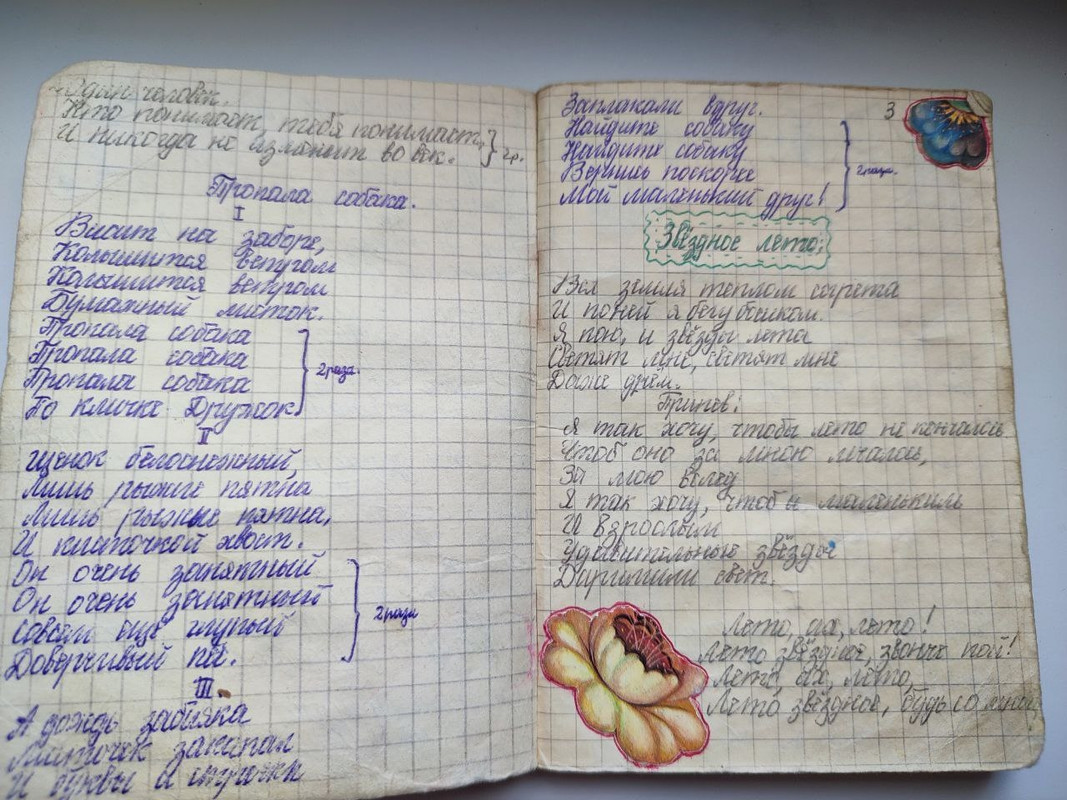 Один человек.
Кто понимает, тебя понимает,
И никогда не изменит во век. } 2р.
Пропала собака.
I
Висит на заборе,
Колышится ветром
Колышится ветром
Бумажный листок.
Пропала собака
Пропала собака
Пропала собака
По кличке Дружок
2 раза.
II
Щенок белоснежный,
Лишь рыжие пятна
Лишь рыжие пятна,
И кисточкой хвост.
Он очень занятный
Он очень занятный
Совсем еще глупый
Доверчивый пёс.
2 раза
III
А дождь забияка
Листочек закапал
И буквы и строчки
3
Заплакали вдруг.
Найдите собаку
Найдите собаку
Вернись поскорее
Мой маленький друг!
2 раза.
Звёздное лето.
Вся земля теплом согрета
И поней я бегу босиком.
Я пою, и звёзды лета
Светят мне, светят мне
Даже днём.
Припев:
Я так хочу, чтобы лето не кончалось
Чтоб оно за мною мчалось,
За мною вслед
Я так хочу, чтоб и маленьким
И взрослым
Удивительные звёзды
Дарили свет.
Лето, ах, лето!
Лето звёздное, звонче пой!
Лето, ах, лето,
Лето звёздное, будь со мной